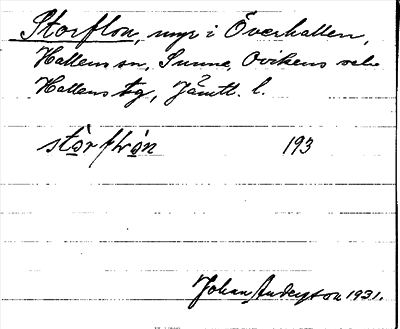 Storflon, myr i Överhallen,
Hallens sn, Sunne, Ovikens och
Hallens tg, Jämtl. l.
193
Johan Anderson 1931.